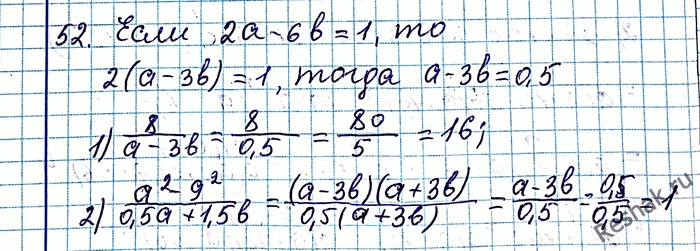 52. Если 2a-6в=1, то
2(a-3в)=1, тогда a-3в=0,5
1) 8/(a-3в) = 8/0,5 = 80/5 = 16;
2) (a²-9²)/(0,5a+1,5в) = (a-3в)(a+3в)/(0,5(a+3в)) = (a-3в)/0,5 = 0,5/0,5 = 1
Reshak.ru